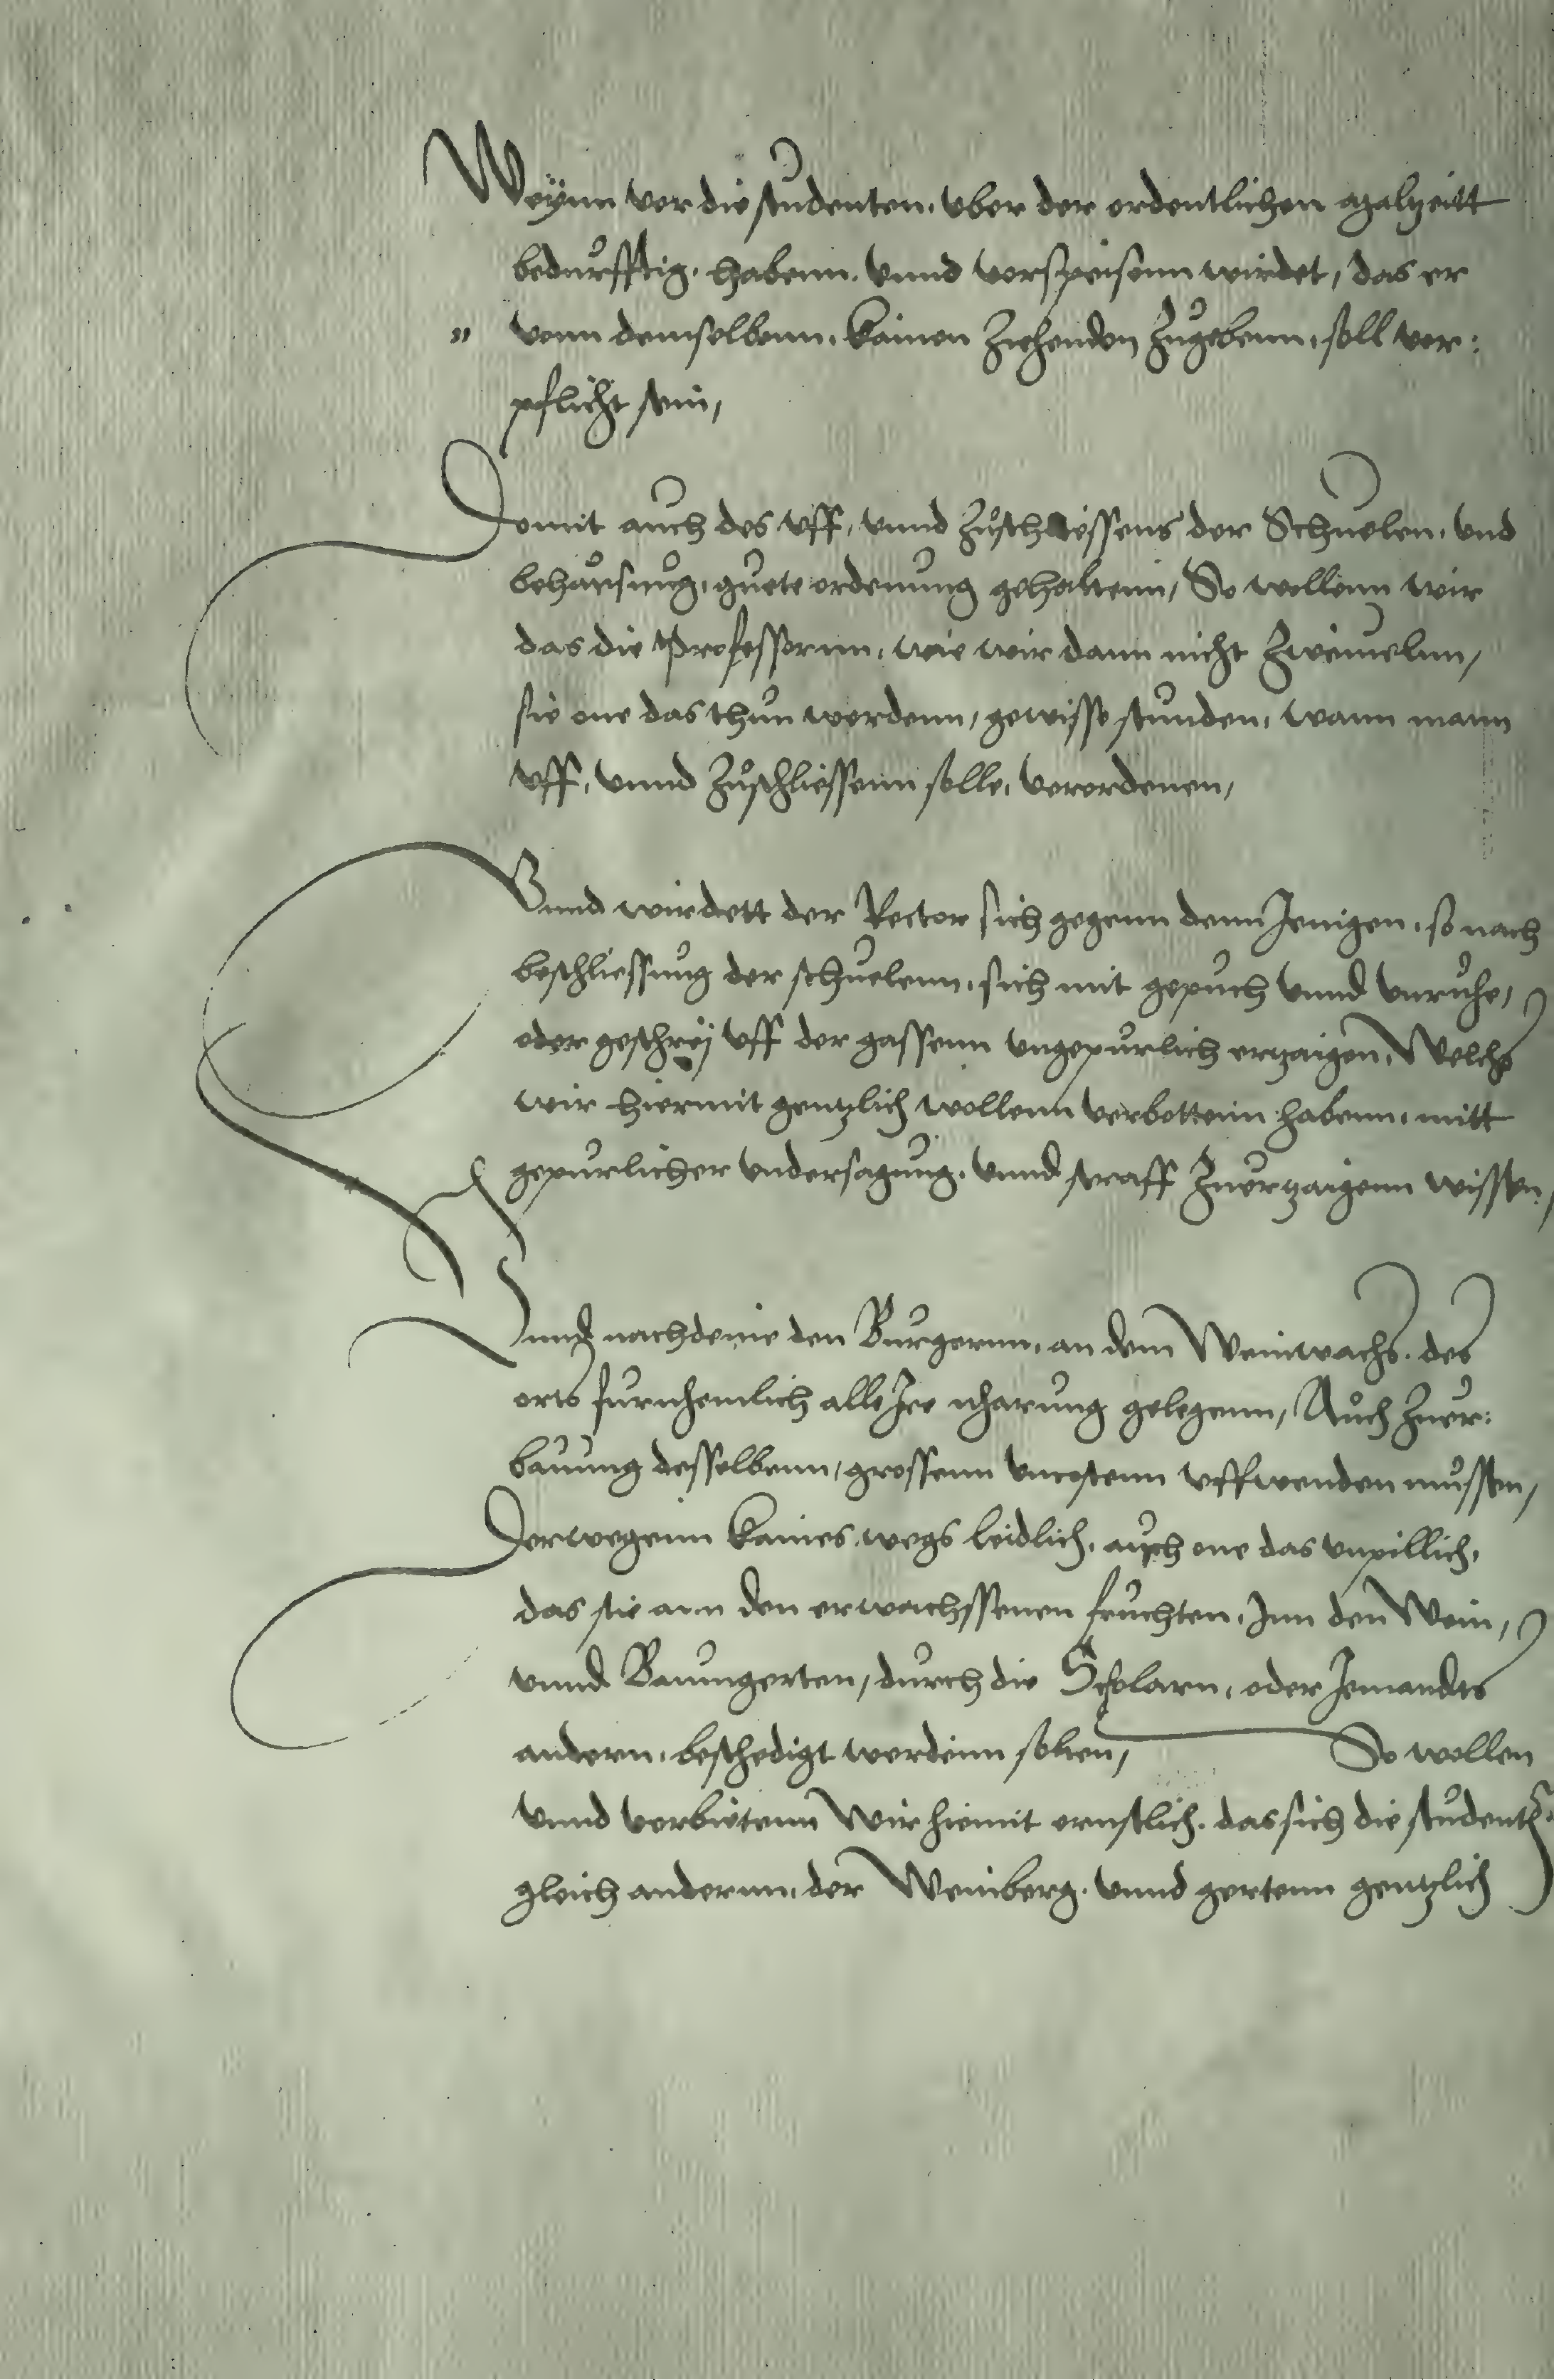 Weynn vor die studenten, vber der ordentlichen malzeitt
bedurfftig, habenn, vnnd verspeisenn wirdet, das er
" vonn demselbenn, kainen Zehenden Zugebenn, soll ver:
pflicht sein,
Domit auch des vff, vnnd Zuschliessens der Schuelen, vnd
behausung, guete ordenung gehaltenn, So wollenn wir
das die Professornn, wie wir dann nicht Zweiuelnn,
sie one das thun werdenn, gewisse stunden, wann mann
vff, vnnd Zuschliessenn solle, verordenen,
Vnnd wirdett der Rector sich gegenn denn Jenigen, so nach
beschliessung der schuelenn, sich mit gepuch vnnd vnruhe,
oder geschrej vff der gassenn vngepurlich erzaigen, Welchs
wir hiermit gentzlich wollenn verbottenn habenn, mitt
gepurlicher vndersagung, vnnd straff Zuerzaigenn wissen,
Vnnd nachdeme den Burgernn, an dem Weinwachs, des
orts furnhemlich alle Ire nharung gelegenn, Auch Zuer:
bauung desselbenn, grossenn vncostenn vffwenden mussen,
Derwegenn kaines wegs leidlich, auch one das vnpillich,
das sie ann den erwachssenen fruchten, Inn den Wein,
vnnd Baumgerten, durch die Scholarn, oder Jemandts
andern, beschedigt werdenn solten, So wollen
vnnd verbietenn Wir hiemit ernstlich, das sich die student
gleich andernn, der Weinberg, vnnd gertenn gentzlich